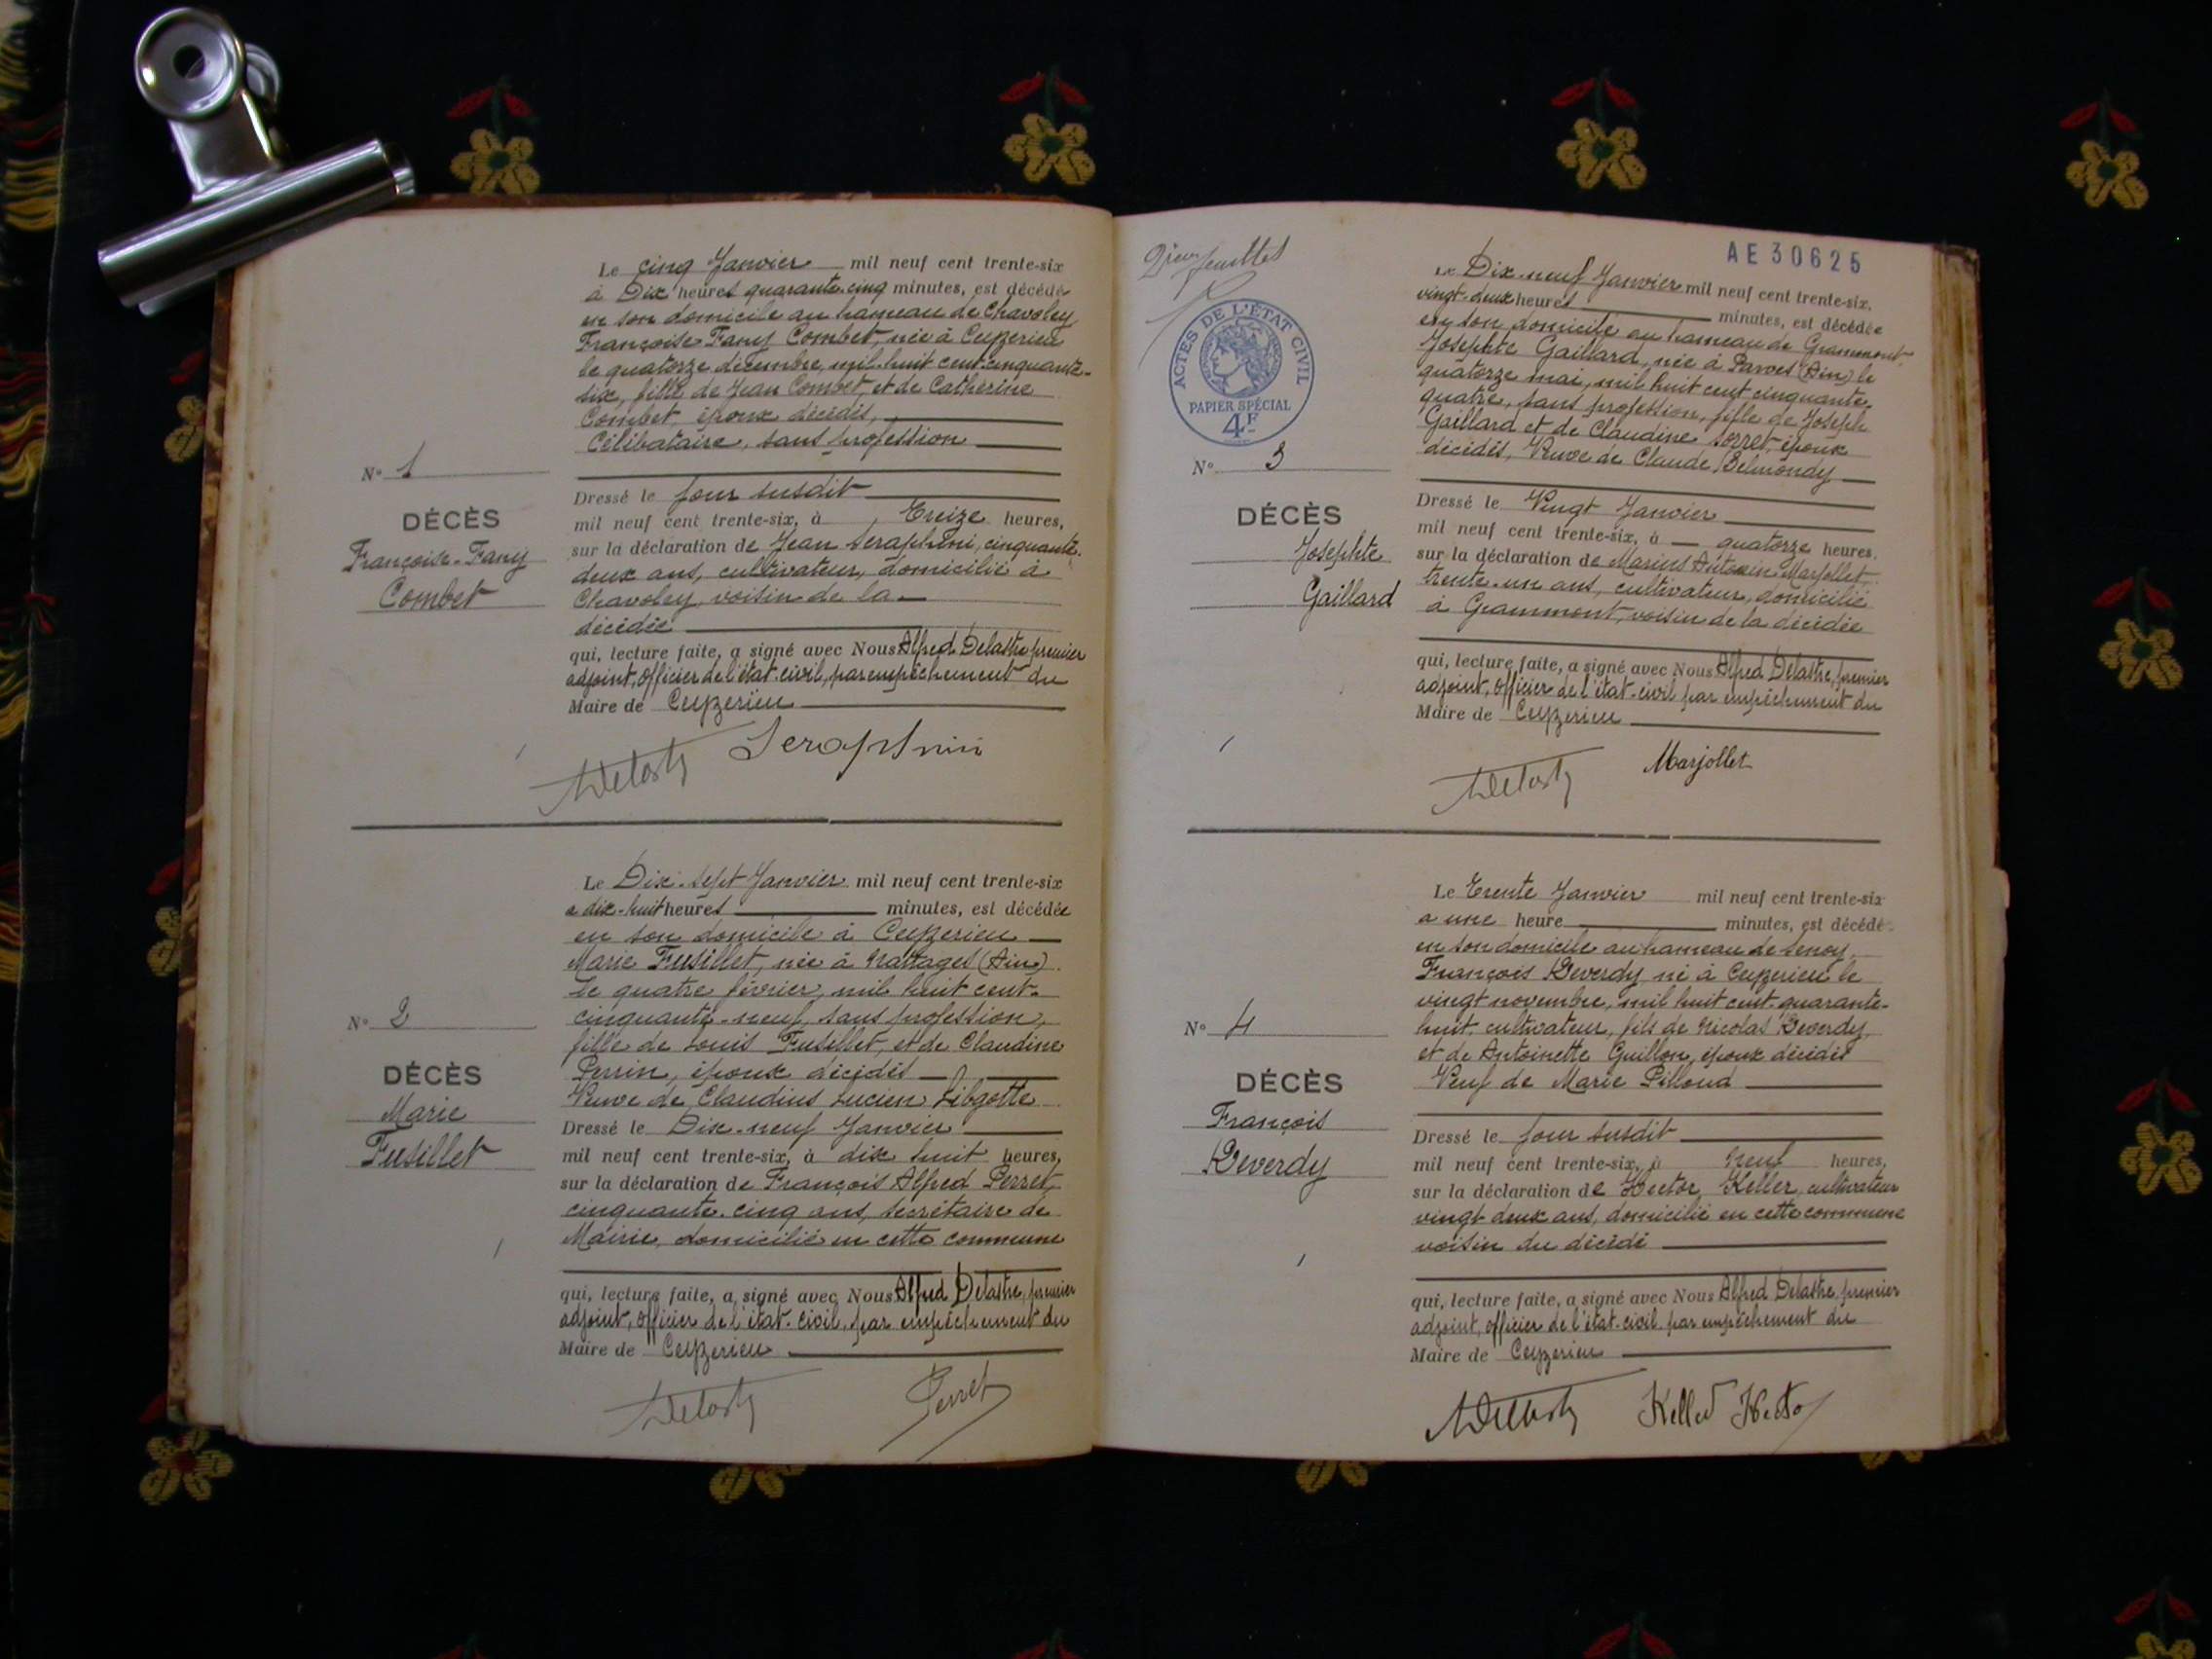 Le cinq Janvier mil neuf cent trente-six
à Dix heures quarante-cinq minutes, est décédée
en son domicile au hameau de Chavoley
Françoise Fany Combet, née à Ceyzerieu
le quatorze décembre, mil huit cent cinquante-
six, fille de Jean Combet, et de Catherine
Combet, époux décédés,
Célibataire, sans profession
N° 1
DÉCÈS
Françoise-Fany
Combet
Dressé le jour susdit
mil neuf cent trente-six, à Treize heures,
sur la déclaration de Jean Seraphini, cinquante-
deux ans, cultivateur, domicilié à
Chavoley, voisin de la
décédée
qui, lecture faite, a signé avec Nous Alfred Delastre, premier
adjoint, officier de l'état-civil, par empêchement du
Maire de Ceyzerieu
ADelastre Seraphini
Le Dix-sept Janvier mil neuf cent trente-six
a dix-huit heures minutes, est décédée
en son domicile à Ceyzerieu
Marie Fusillet, née à Nattages (Ain)
le quatre février, mil huit cent-
cinquante-neuf, sans profession,
fille de Louis Fusillet, et de Claudine
Perrin, époux décédés
Veuve de Claudius Lucien Libgotte
N° 2
DÉCÈS
Marie
Fusillet
Dressé le Dix-neuf Janvier
mil neuf cent trente-six, à dix huit heures,
sur la déclaration de François Alfred Perret,
cinquante-cinq ans, secrétaire de
Mairie, domicilié en cette commune
qui, lecture faite, a signé avec Nous Alfred Delastre, premier
adjoint, officier de l'état-civil, par empêchement du
Maire de Ceyzerieu
ADelastre Perret
feuillet
AE30625
ACTES DE L'ÉTAT CIVIL
PAPIER SPÉCIAL
4F
Le Dix-neuf Janvier mil neuf cent trente-six,
vingt-deux heures minutes, est décédée
en son domicile au hameau de Grammont
Josephte Gaillard, née à Parves (Ain) le
quatorze mai, mil huit cent cinquante-
quatre, sans profession, fille de Joseph
Gaillard et de Claudine Sorret, époux
décédés, Veuve de Claude Belmondy
N° 3
DÉCÈS
Josephte
Gaillard
Dressé le Vingt Janvier
mil neuf cent trente-six, à quatorze heures,
sur la déclaration de Marius Antonin Marjollet,
trente-un ans, cultivateur, domicilié
à Grammont, voisin de la décédée
qui, lecture faite, a signé avec Nous Alfred Delastre, premier
adjoint, officier de l'état-civil par empêchement du
Maire de Ceyzerieu
ADelastre Marjollet
Le Trente Janvier mil neuf cent trente-six
a une heure minutes, est décédé
en son domicile au hameau de Senoy,
François Deverdy, né à Ceyzerieu le
vingt novembre, mil huit cent quarante-
huit, cultivateur, fils de Nicolas Deverdy,
et de Antoinette Guillon, époux décédés
Veuf de Marie Pilloud
N° 4
DÉCÈS
François
Deverdy
Dressé le jour susdit
mil neuf cent trente-six, à Neuf heures,
sur la déclaration de Hector Keller, cultivateur
vingt-deux ans, domicilié en cette commune
voisin du décédé
qui, lecture faite, a signé avec Nous Alfred Delastre, premier
adjoint, officier de l'état-civil par empêchement du
Maire de Ceyzerieu
ADelastre Keller Hector